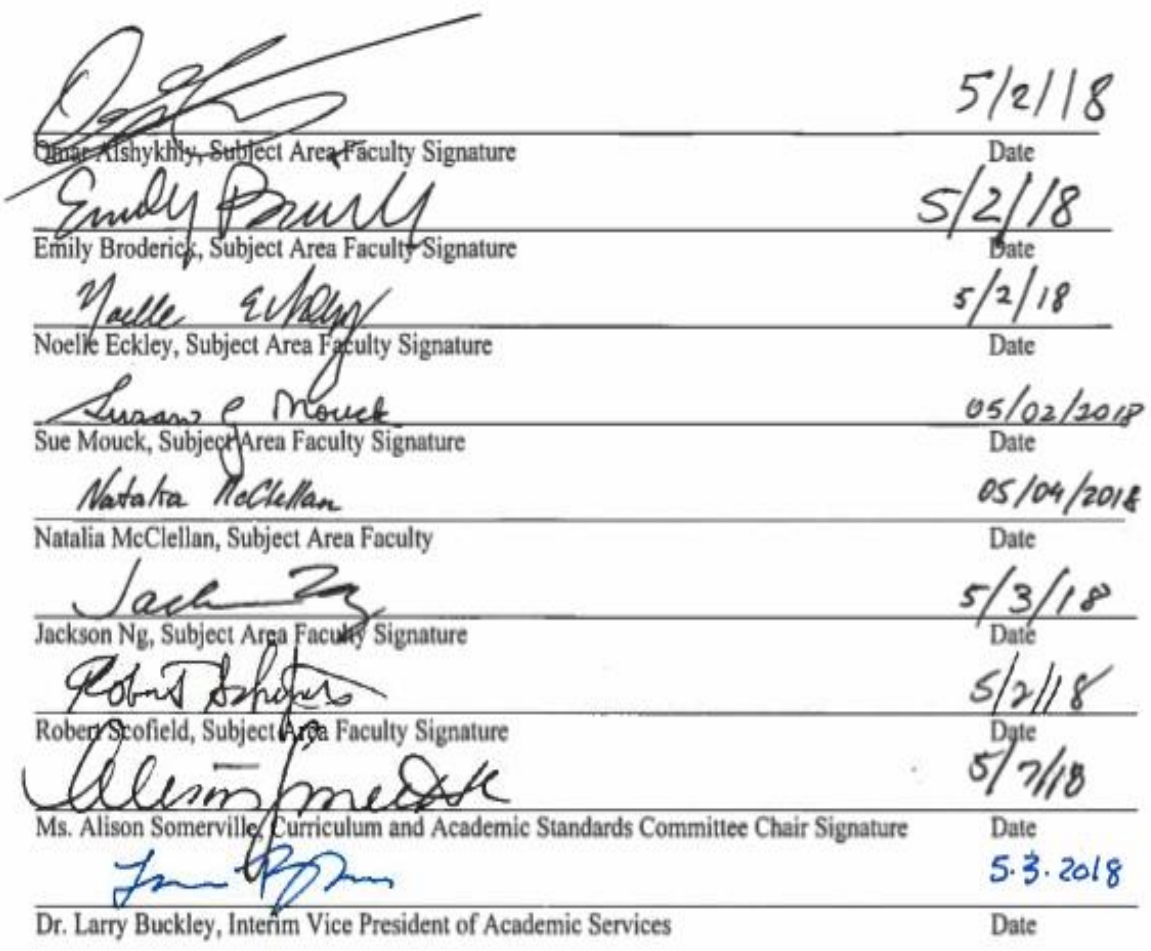 5/2/18
Omar Alshykhly, Subject Area Faculty Signature Date
Emily 5/2/18
Emily Broderick, Subject Area Faculty Signature Date
Noelle Eckley 5/2/18
Noelle Eckley, Subject Area Faculty Signature Date
Susan G Mouck 05/02/2018
Sue Mouck, Subject Area Faculty Signature Date
Natalia McClellan 05/04/2018
Natalia McClellan, Subject Area Faculty Date
Jackson Ng 5/3/18
Jackson Ng, Subject Area Faculty Signature Date
Robert 5/2/18
Robert Scofield, Subject Area Faculty Signature Date
Alison 5/7/18
Ms. Alison Somerville, Curriculum and Academic Standards Committee Chair Signature Date
5.3.2018
Dr. Larry Buckley, Interim Vice President of Academic Services Date